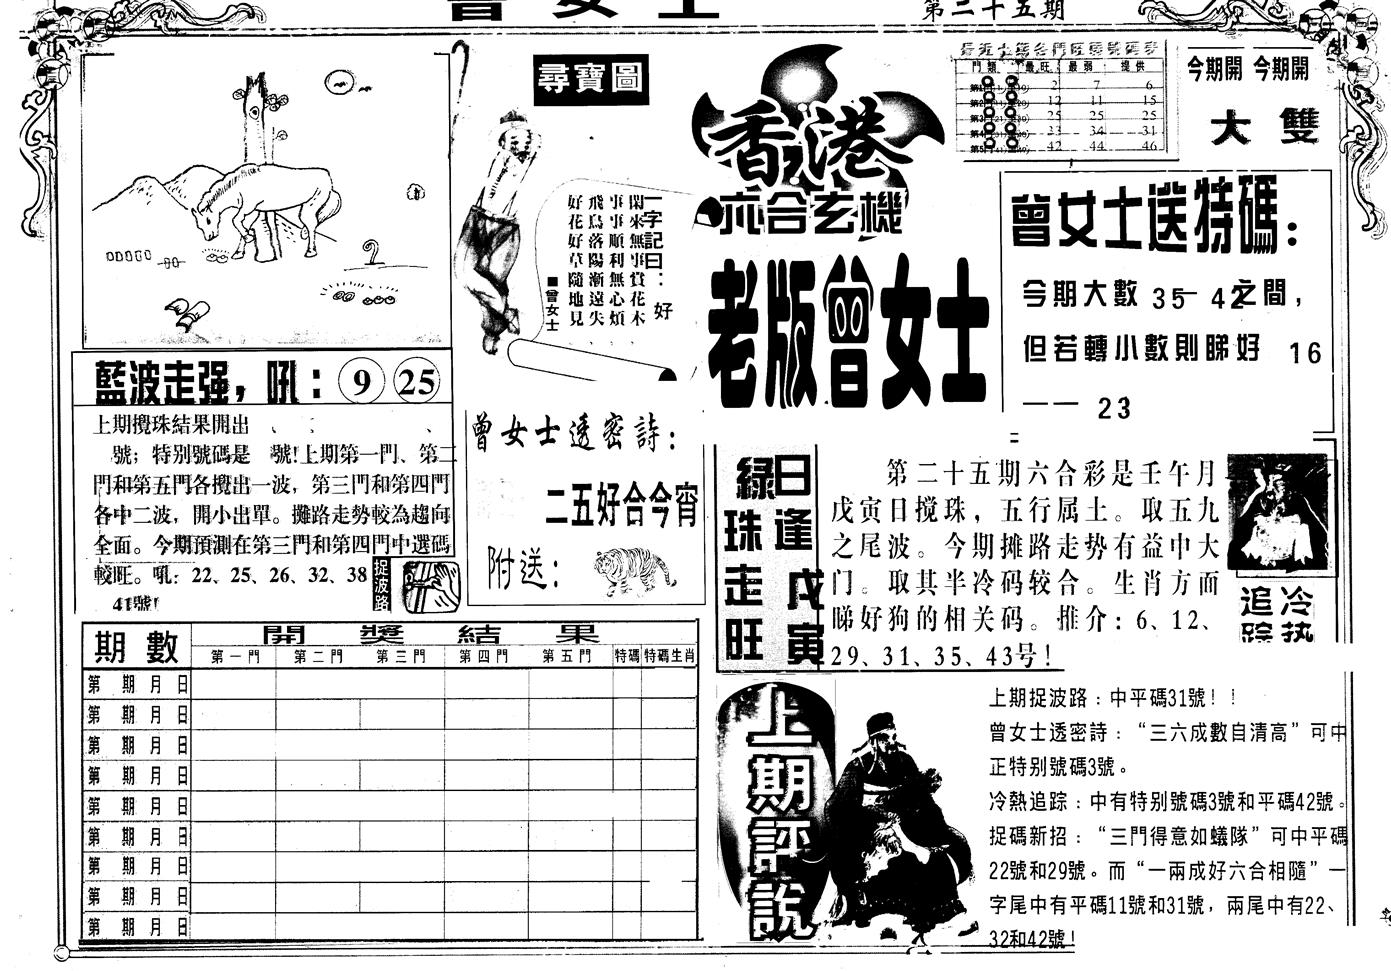 曾女士
第二十五期
尋寶圖
一字記曰：好
閑來無事賞花木
事事順利無心煩
飛鳥落陽漸遠失
好花好草隨地見
■曾女士
香港
六合玄機
老版曾女士
門類 最旺 最弱 提供
2 7 6
12 11 15
25 25 25
33 34 31
42 44 46
今期開 今期開
大 雙
曾女士送特碼：
今期大數 35—42之間，
但若轉小數則睇好 16
—— 23
藍波走强，吼：9 25
上期攪珠結果開出 、 ； 、
號；特別號碼是 號!上期第一門、第二
門和第五門各攪出一波，第三門和第四門
各中二波，開小出單。攤路走勢較為趨向
全面。今期預測在第三門和第四門中選碼
較旺。吼：22、25、26、32、38
41號!
捉波路
曾女士透密詩：
二五好合今宵
附送：
綠珠走旺
日逢戊寅
第二十五期六合彩是壬午月
戊寅日搅珠，五行属土。取五九
之尾波。今期摊路走势有益中大
门。取其半冷码较合。生肖方面
睇好狗的相关码。推介：6、12、
29、31、35、43号！
冷热
追踪
期數 開獎結果
第一門 第二門 第三門 第四門 第五門 特碼 特碼生肖
第 期 月 日
第 期 月 日
第 期 月 日
第 期 月 日
第 期 月 日
第 期 月 日
第 期 月 日
第 期 月 日
第 期 月 日
上期評說
上期捉波路：中平碼31號！！
曾女士透密詩：“三六成數自清高”可中
正特別號碼3號。
冷熱追踪：中有特別號碼3號和平碼42號。
捉碼新招：“三門得意如蟻隊”可中平碼
22號和29號。而“一兩成好六合相隨”一
字尾中有平碼11號和31號，兩尾中有22、
32和42號！